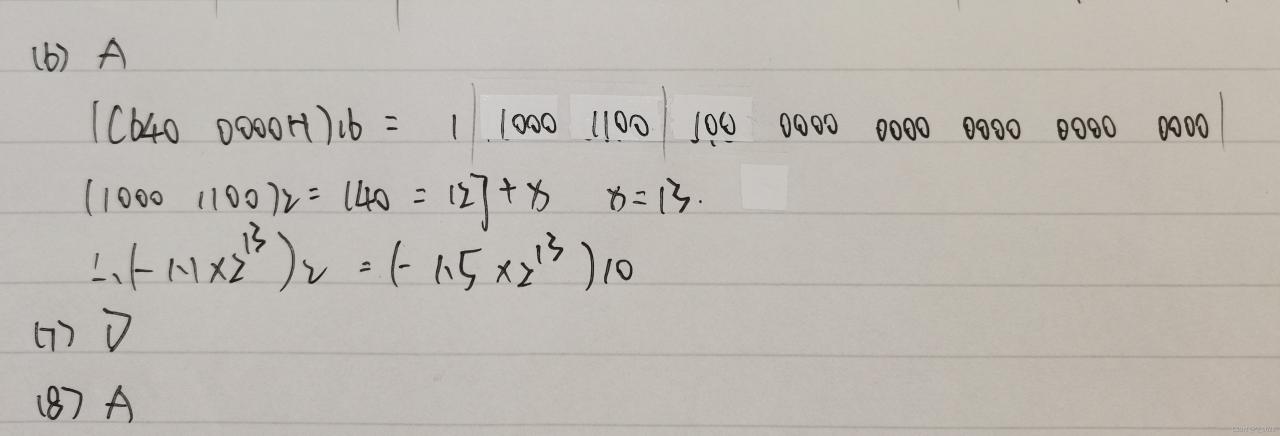 (6) A
(C640 0000H)16 = 1 | 1000 1100 | 100 0000 0000 0000 0000 0000 |
(1000 1100)2 = 140 = 127 + x x = 13.
∴ (- 1.1 × 2^13)2 = (- 1.5 × 2^13)10
(7) D
(8) A